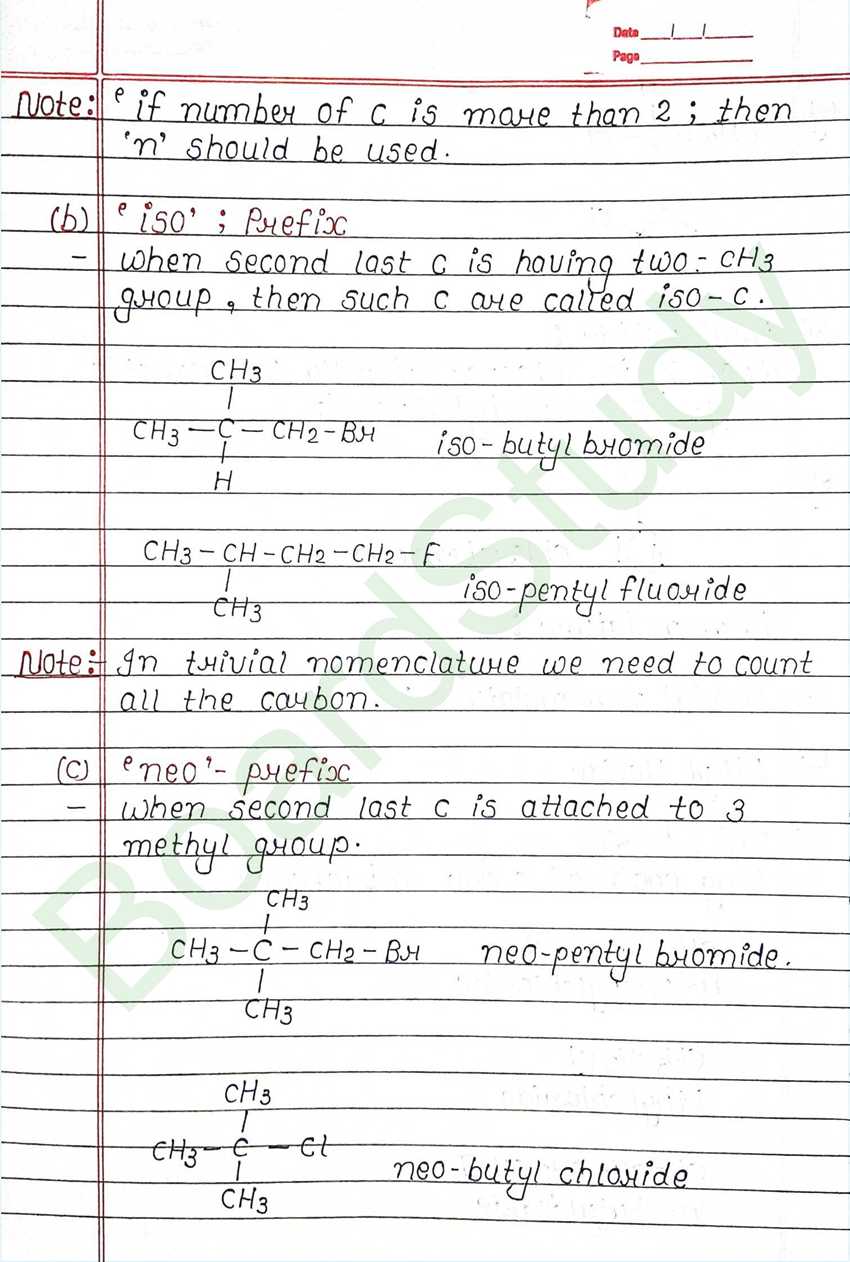 Date / /
Page
Note: 'if number of C is more than 2 ; then
'n' should be used.
(b) 'iso' ; Prefix
- when second last C is having two - CH3
group, then such C are called iso - C.
CH3
|
CH3 — C — CH2 - Br iso - butyl bromide
|
H
CH3 - CH - CH2 - CH2 - F
| iso-pentyl fluoride
CH3
Note:- In trivial nomenclature we need to count
all the carbon.
(c) 'neo' - prefix
- when second last C is attached to 3
methyl group.
CH3
|
CH3 - C - CH2 - Br neo-pentyl bromide.
|
CH3
CH3
|
CH3 - C - Cl
| neo-butyl chloride
CH3
BoardStudy